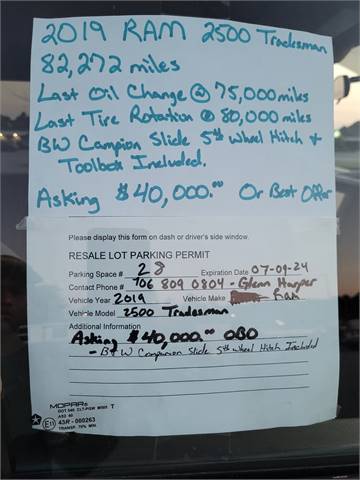 2019 RAM 2500 Tradesman
82,272 miles
Last Oil Change @ 75,000 miles
Last Tire Rotation @ 80,000 miles
BW Campion Slide 5th Wheel Hitch &
Toolbox Included.
Asking $40,000.00 Or Best Offer
Please display this form on dash or driver's side window.
RESALE LOT PARKING PERMIT
Parking Space # 28 Expiration Date 07-09-24
Contact Phone # 706 809 0804 - Glenn Harper
Vehicle Year 2019 Vehicle Make Ram
Vehicle Model 2500 Tradesman
Additional Information
Asking $40,000.00 OBO
- B&W Companion Slide 5th Wheel Hitch Included
MOPAR
DOT 546 T
AS2
E11 43R - 000263
TRANSP. 70% MIN.